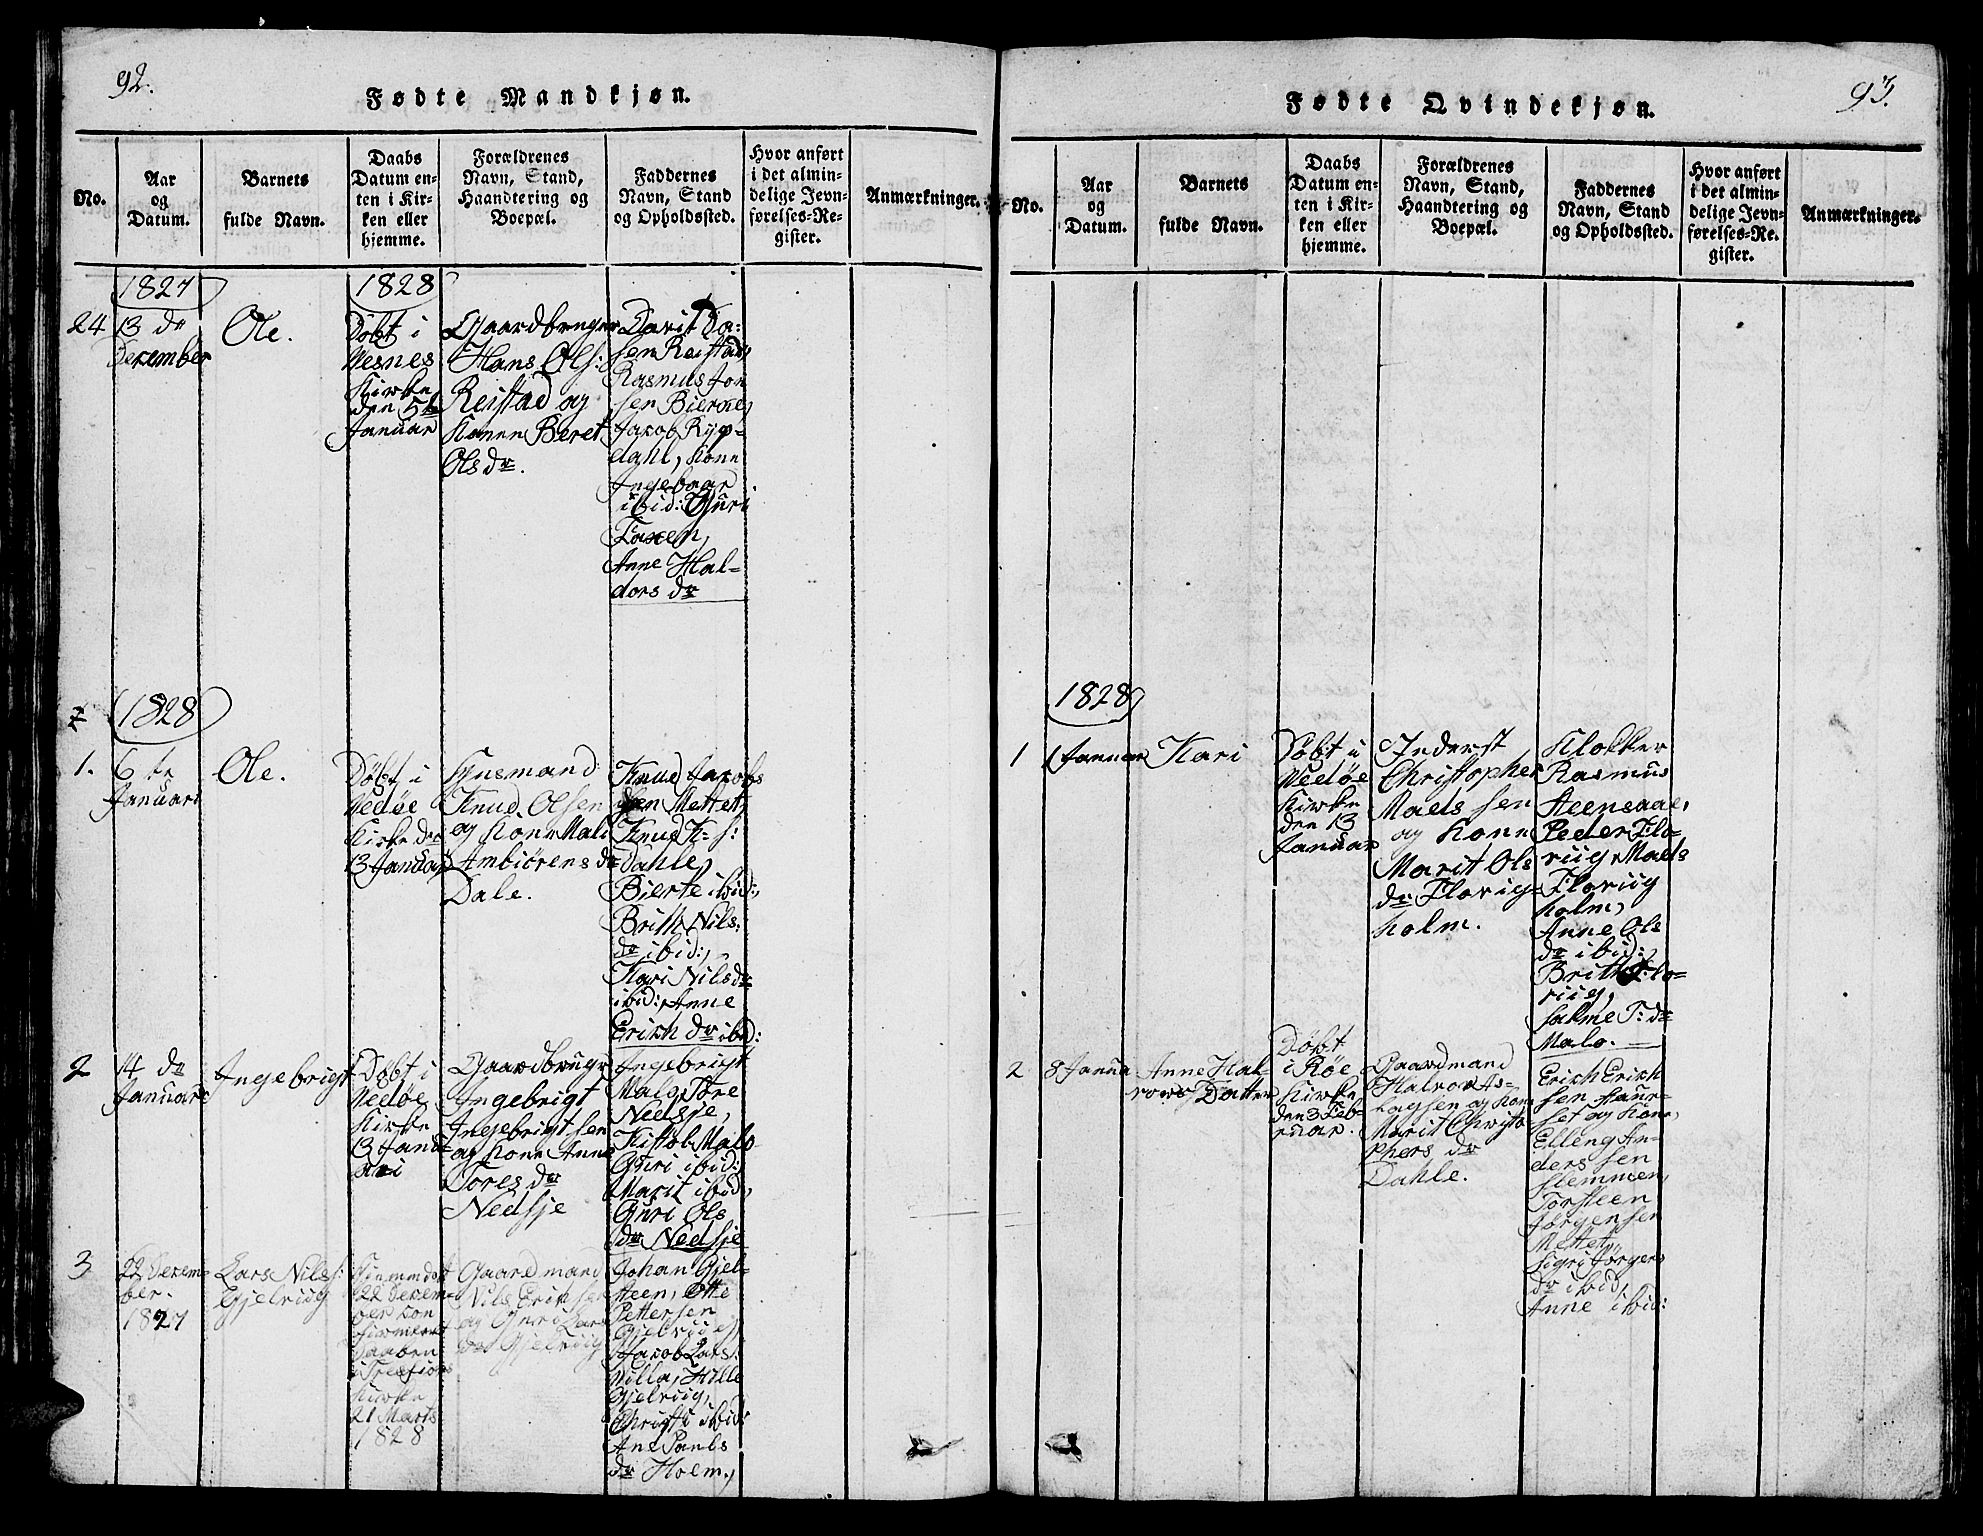 92.
Fødte Mandkjøn.
No.
Aar
og
Datum.
Barnets
fulde Navn.
Daabs
Datum en-
ten i Kir-
ken eller
hjemme.
Forældrenes
Navn, Stand,
Haandtering og
Boepæl.
Faddernes
Navn, Stand
og Opholdssted.
Hvor anført
i det almin-
delige Jevn-
førelses-Re-
gister.
Anmærkninger.
1827
24
13 de
December
Ole.
1828
Døbt i
Vesnes
Kirke
den 5te
Januar
Gaardbruger
Hans Ols:
Reistad og
Kone Beret
Olsdr.
Rasmus Jon
sen
Jacob Ryp-
dahl, Kone
Ingeboar
ibid: Guri
Anne Hal-
dors dr
1828
1.
6 te
Januari
Ole.
Døbt i
Vedøe
Kirke de
13 Januar
Huusmand
Knud Olsen
og Kone Mali
Ambiørens dr
Dale.
Knud Jacobs
sen Mettet,
Knud K: s:
Dahle,
Bierte ibid:,
Brith Nils:
dr ibid:,
Kari Nilsdr
ibid: Anne
Erich dr ibid:
2
14 de
Januari
Ingebrigt
Døbt i
Vedøe
Kirke
13 Janu-
ari
Gaardbrugr
Ingebrigt
Ingebrigtsen
og Kone Anne
Tores dr
Nedsje
Ingebrigt
Malo, Tore
Nedsje,
Malo
Guri ibid:
Marit ibid,
Guri Ols
dr Nedsje
3
22 Decem-
ber.
1827
Lars Nils:
Gjelviig
Hiemmedøbt
22 Decem-
ber con
firmeret
Daaben
i
Kirke
21 Marts
1828
Gaardmand
Nils Erichsen
og Guri Lars
dr Gjelviig
Johan Gjel-
steen, Otte
Pettersen
Gjelviig,
Jacob Lars:
Villa, Hille
Gjelviig,
Christi ibid:
Ane Pauls
dr Holm,
93.
Fødte Qvindekjøn.
No.
Aar
og
Datum.
Barnets
fulde Navn.
Daabs
Datum en-
ten i Kir-
ken eller
hjemme.
Forældrenes
Navn, Stand,
Haandtering og
Boepæl.
Faddernes
Navn, Stand
og Opholdssted.
Hvor anført
i det almin-
delige Jevn-
førelses-Re-
gister.
Anmærkninger.
1828
1
1 Januar
Kari
Døbt i
Vedøe
Kirke
den 13
Januar
Inderst
Christopher
Madssen
og Kone
Marit Ols
dr Florig-
holm.
Klokker
Rasmus
Peder Flo-
riig, Mads
Floriig
holm,
Anne Ols
dr ibid:
Brith Flo-
riig,
T: dr
Malo.
2
8 Janua
Anne Hal-
vors Datter
Døbt
i Røe
Kirke
den 3 Feb-
ruar.
Gaardmand
Halvor As-
lagsen og Kone
Marit Christo
phers dr
Dahle.
Erich Erich
sen
set og Kone,
Elling An-
ders sen
Torsteen
Jørgensen
Mettet,
Sigri Jørgens
dr ibid,
Anne ibid: